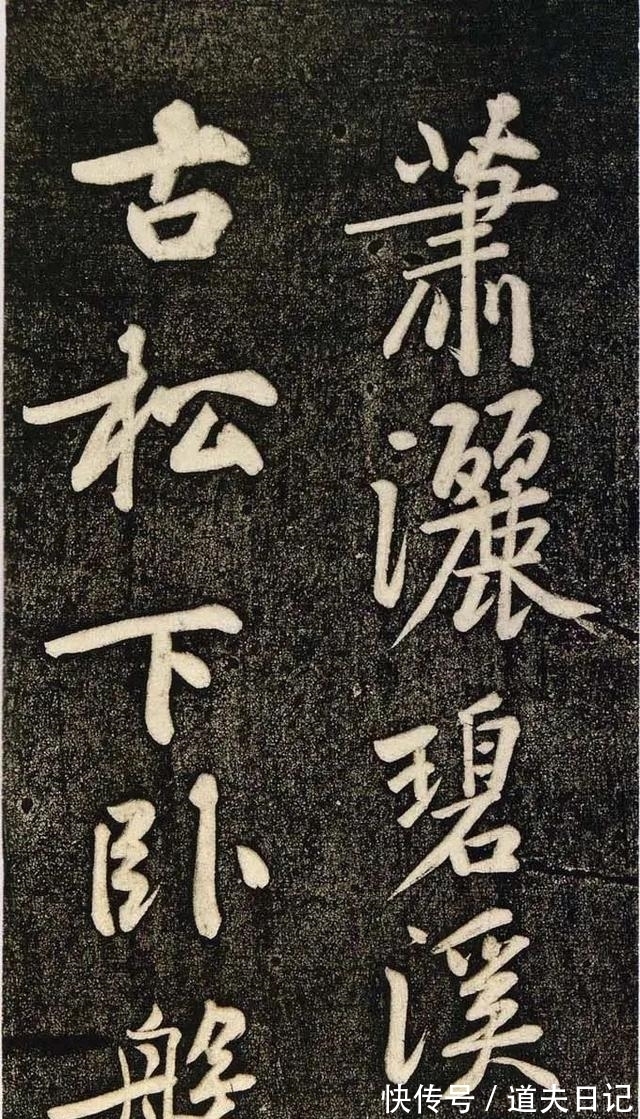 蕭灑碧溪
古松下卧盤
快传号/道夫日记